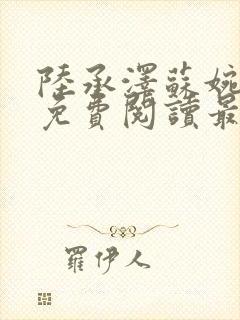 陸承澤蘇婉
免費閱讀最
羅伊人